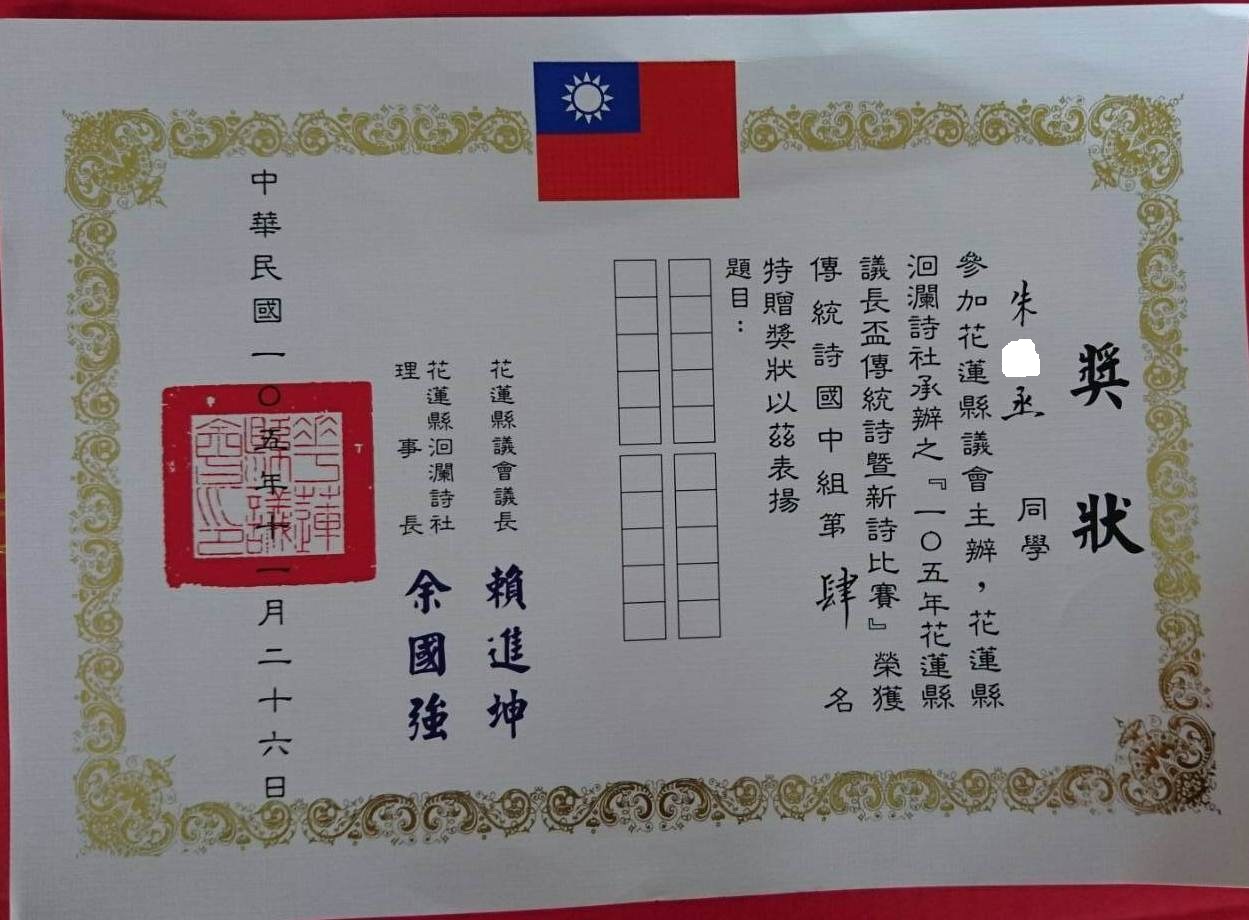 獎狀
朱丞 同學
參加花蓮縣議會主辦，花蓮縣
洄瀾詩社承辦之『一〇五年花蓮縣
議長盃傳統詩暨新詩比賽』榮獲
傳統詩國中組第肆名
特贈獎狀以茲表揚
題目：
花蓮縣議會議長 賴進坤
花蓮縣洄瀾詩社
理事長 余國強
中華民國一〇五年十一月二十六日
花蓮縣議會印